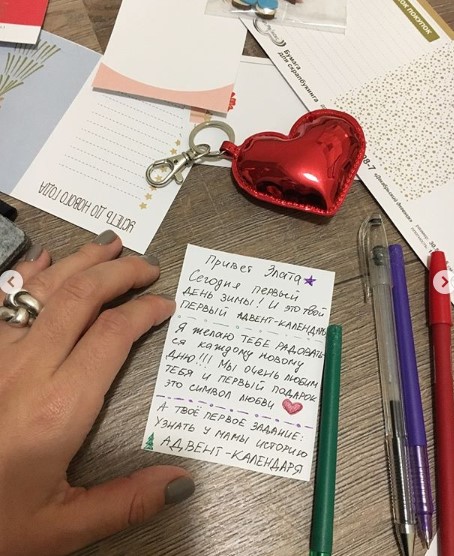 СПИСОК ПОКУПОК
Бумага
для скрапбукинга
УСПЕТЬ ДО НОВОГО ГОДА
Привет Злата
Сегодня первый
день зимы! И это твой
первый адвент-календарь
Я желаю тебе радовать-
ся каждому новому
дню!!! Мы очень любим
тебя и первый подарок
это символ любви
А твоё первое задание:
узнать у мамы историю
АДВЕНТ-КАЛЕНДАРЯ